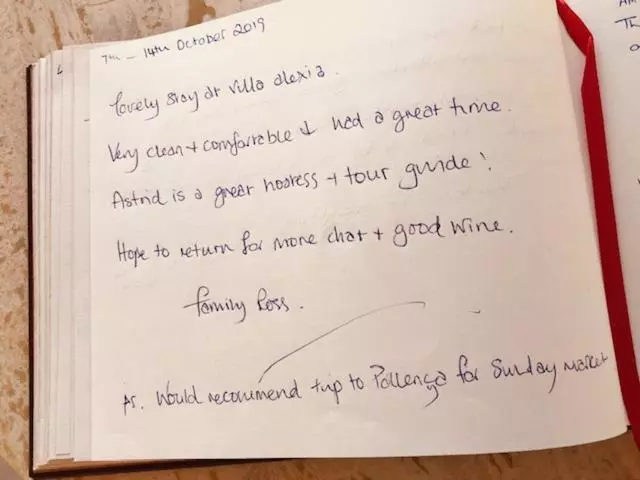 7th - 14th October 2019
lovely stay at Villa alexia.
Very clean + comfortable + had a great time.
Astrid is a great hostess + tour guide!
Hope to return for more chat + good wine.
family Ross.
Ps. Would recommend trip to Pollença for Sunday market
Th